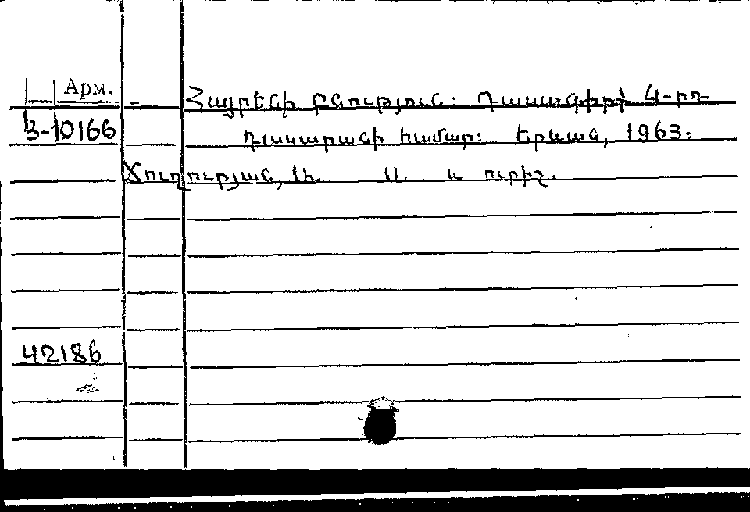 Арм.
Հայրենի բնություն: Դասագիրք 4-րդ
3-10166
դասարանի համար: Երևան, 1963.
Ճուղուրյան, Ա. և ուրիշ.
42186